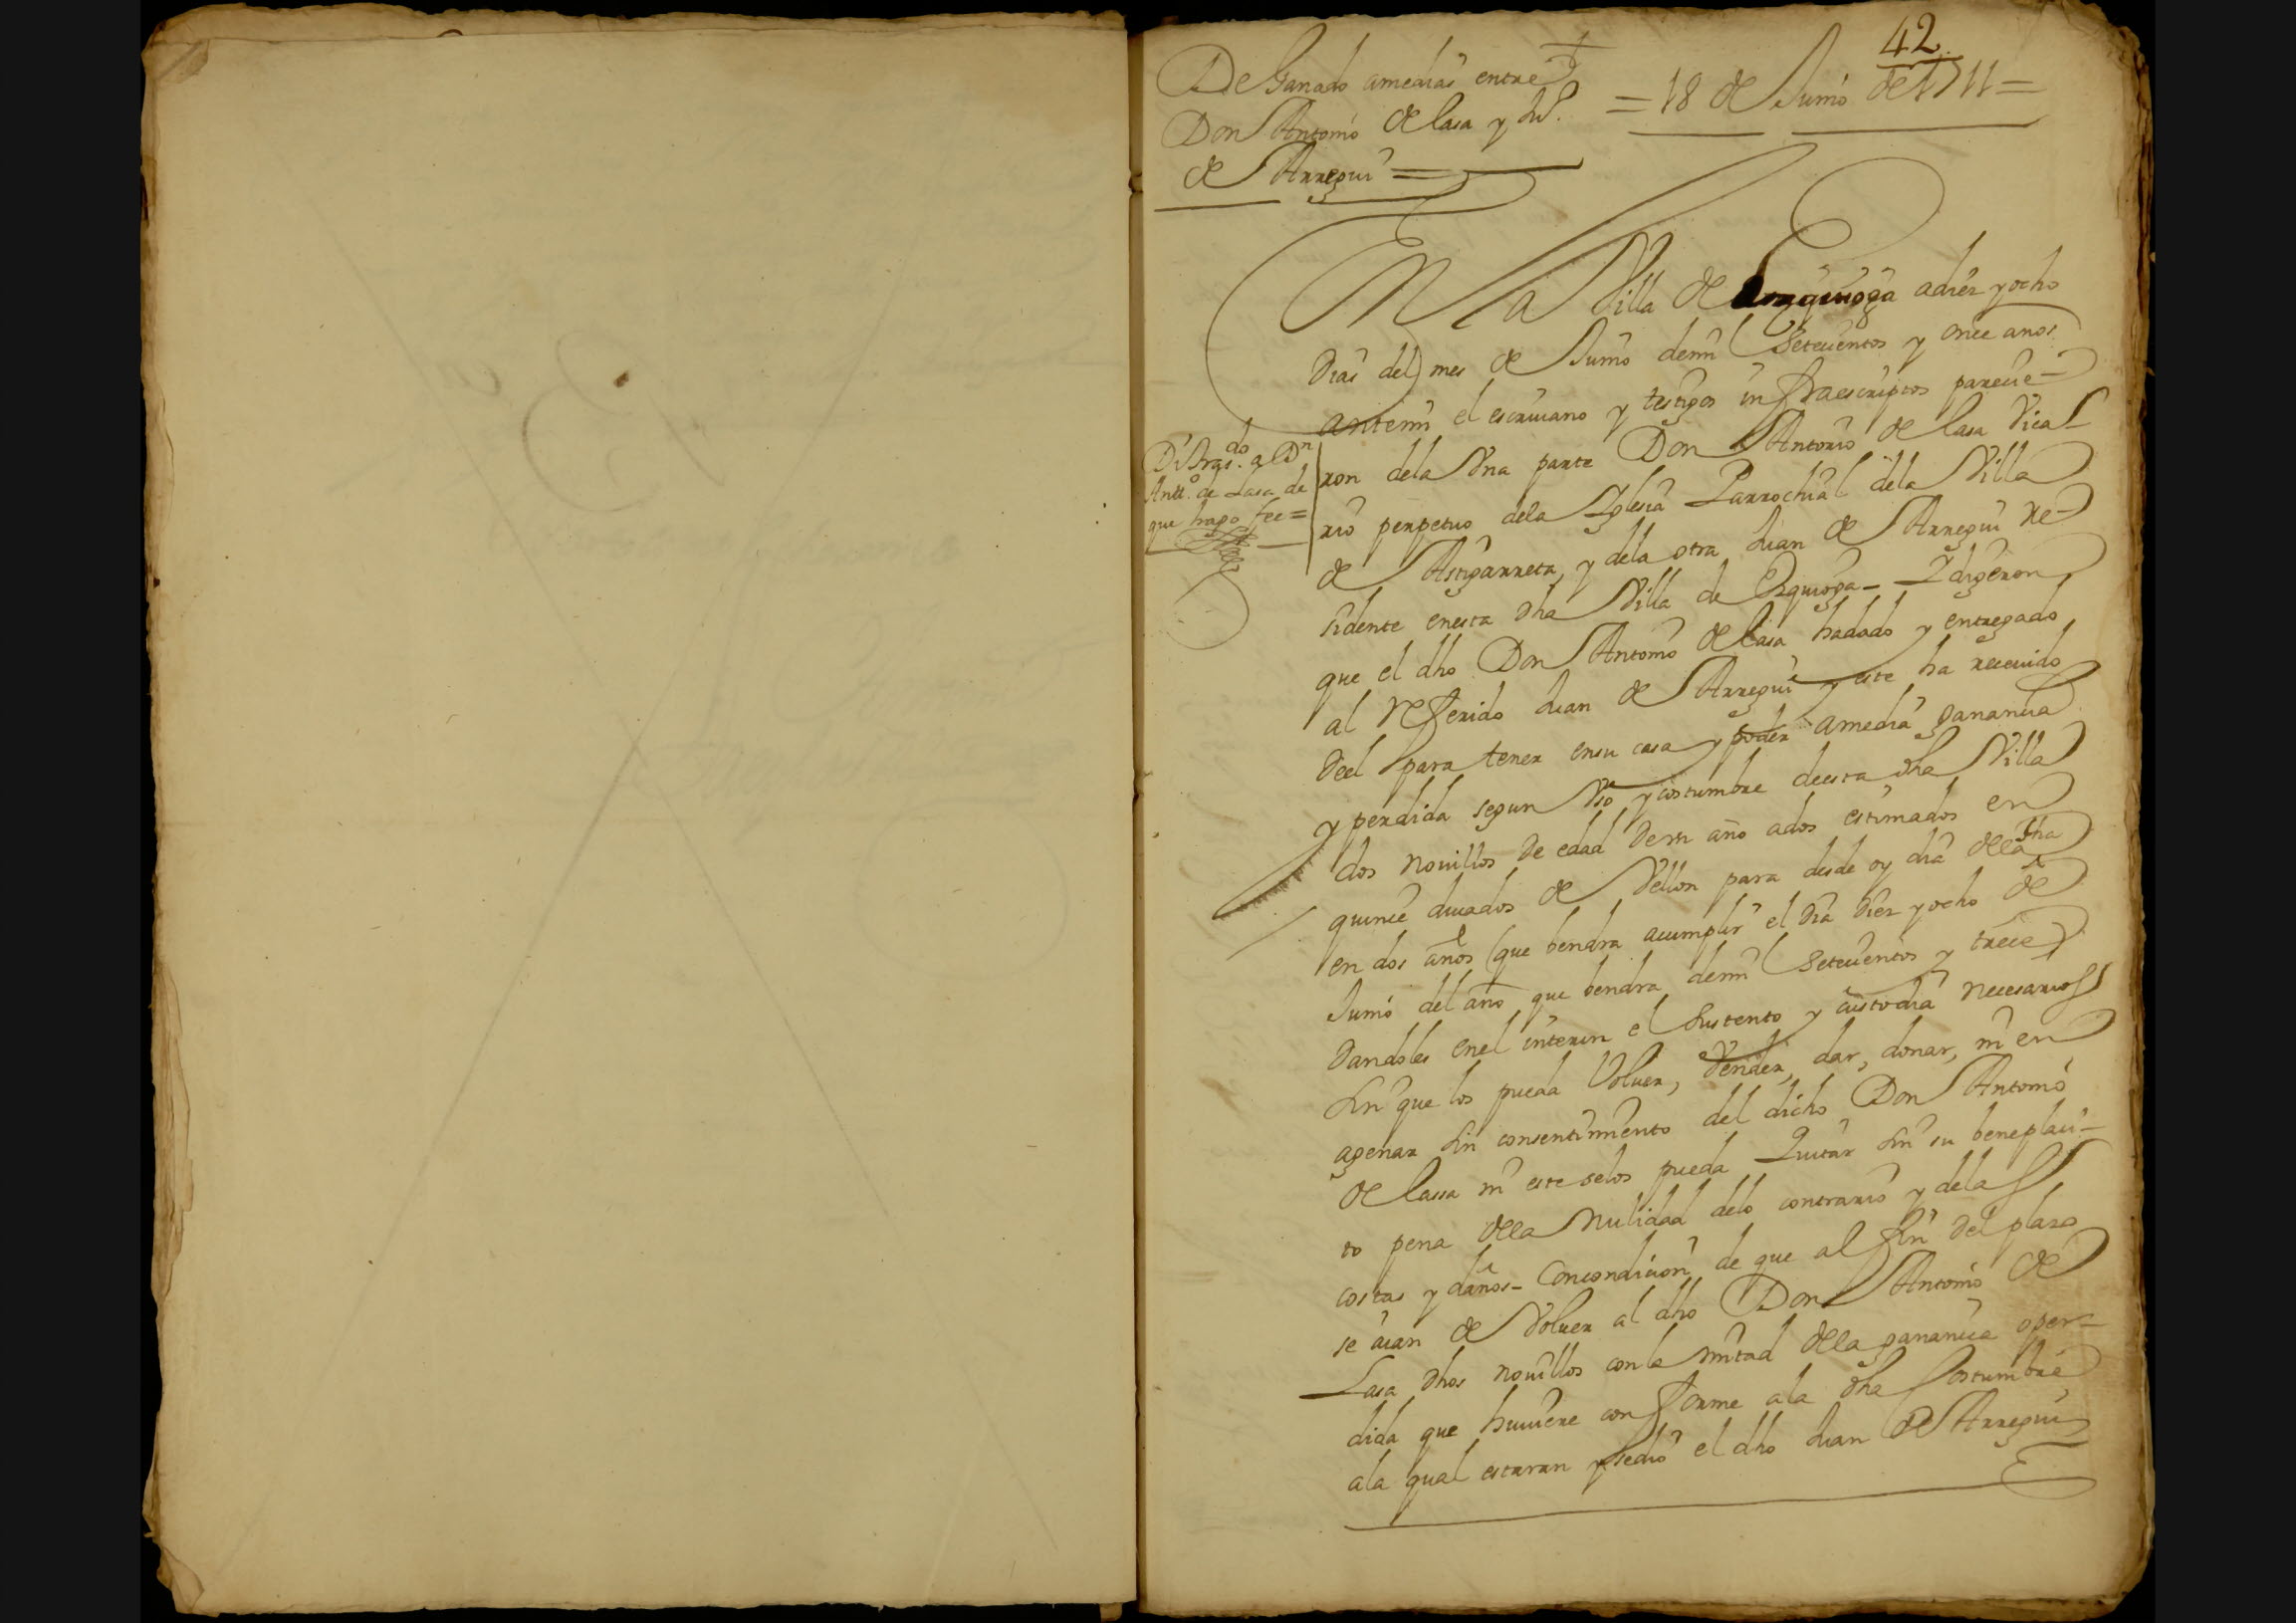 42
De Ganado amedias entre
Don Antonio de lasa y Ju.º
de Arregui =
= 18 de Junio de 1711 =
En la Villa de Ezquioga adiez y ocho
dias del mes de Junio demil Setecientos y once anos
antemi el escriuano y testigos infraescriptos parecie-
ron dela Vna parte Don Antonio de lasa Vica-
rio perpetuo dela Yglesia Parrochial dela Villa
de Astigarreta, y dela otra Juan de Arregui re-
sidente enesta dha Villa de Ezquioga - Y digeron
que el dho Don Antonio de lasa hadado y entregado
al referido Juan de Arregui y este ha receuido
deel para tener ensu casa y poder amedia ganancia
y perdida segun Vso y costumbre deesta dha Villa
dos nouillos de edad de un año ados estimados en
quince ducados de Vellon para desde oy dia dela fha
en dos años (que bendra acumplir el dia diez y ocho de
Junio del año que bendra demil Setecientos y trece)
dandoles enel interin el sustento y custodia necesarios
sin que los pueda Voluer, Vender, dar, donar, ni en
agenar sin consentimiento del dicho Don Antonio
de lassa ni este selos pueda Quitar sin su beneplaci-
to pena dela nulidad delo contrario y delas
costas y daños - Concondicion de que al fin del plazo
se aian de Voluer al dho Don Antonio de
Lasa dhos nouillos con la mitad dela ganancia oper-
dida que huuiere conforme ala dha Costumbre
ala qual estaran y sedio el dho Juan de Arregui
Di tras.do a Dn
Antt.º de Lasa de
que hago fee =